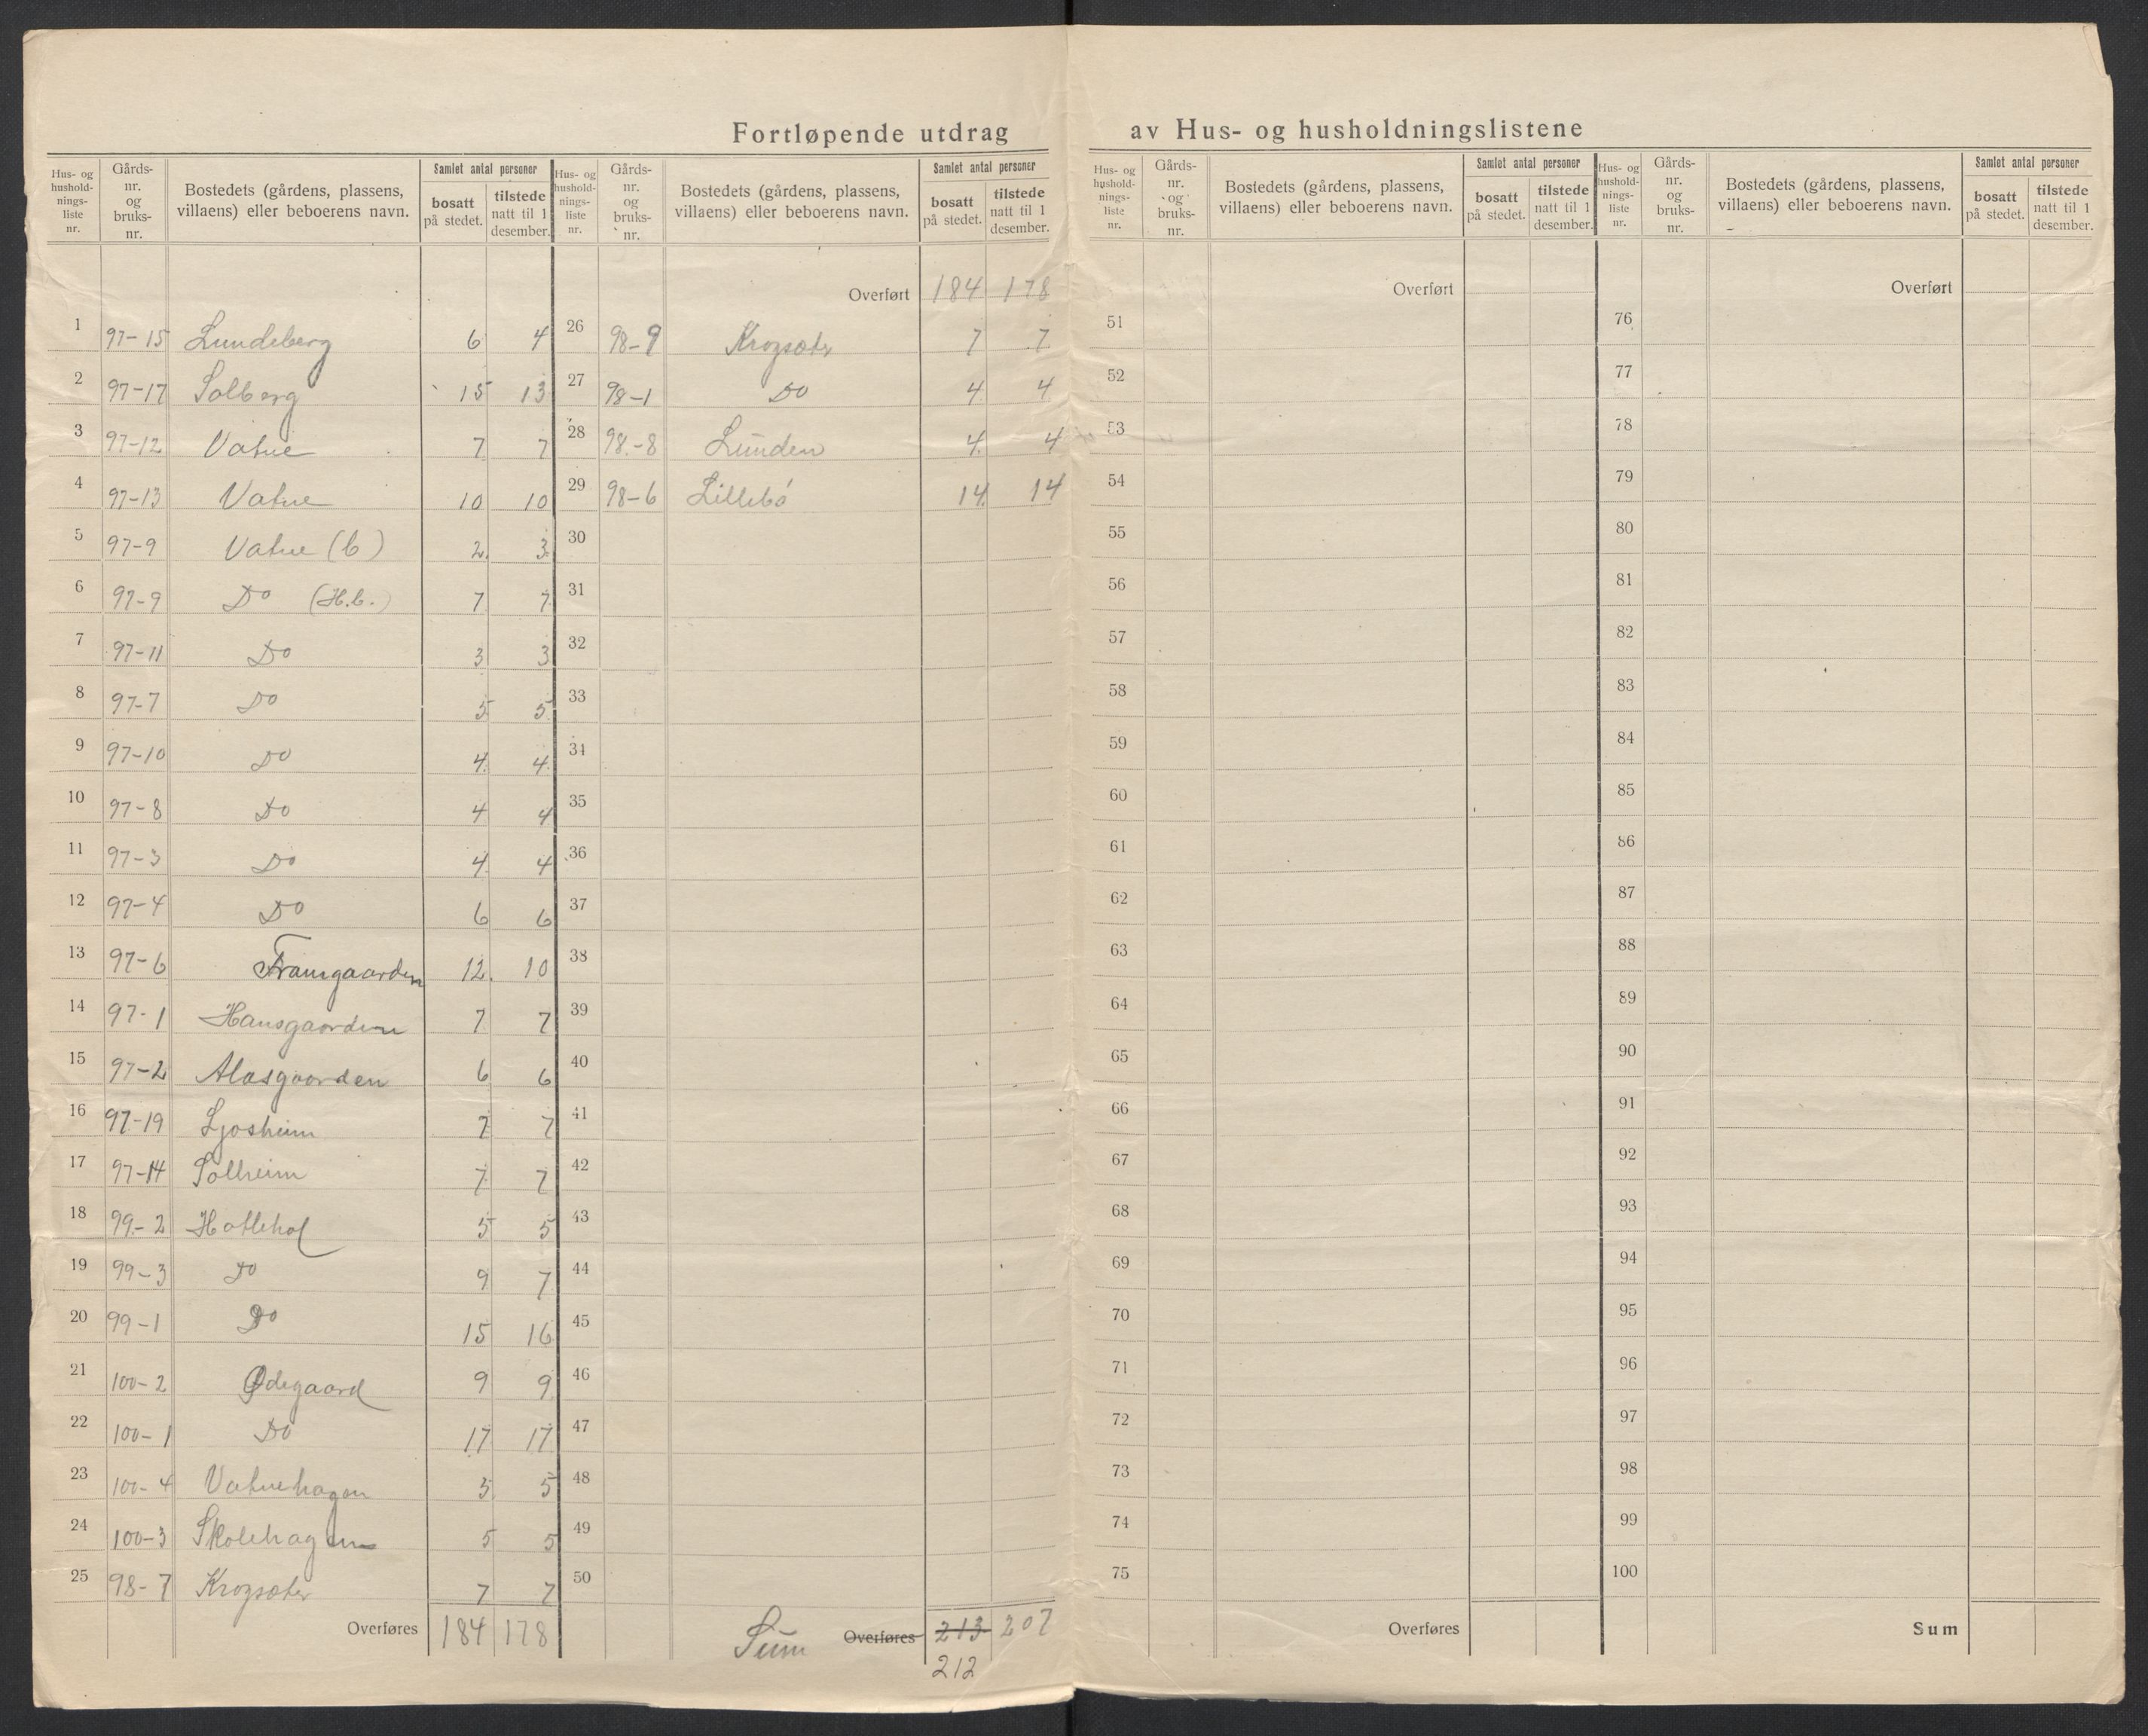 Fortløpende utdrag av Hus- og husholdningslistene
Hus- og hushold- nings- liste nr. | Gårds- nr. og bruks- nr. | Bostedets (gårdens, plassens, villaens) eller beboerens navn. | Samlet antal personer | bosatt på stedet. | tilstede natt til 1 desember.
1 97-15 Lundeberg 6 4
2 97-17 Solberg 15 13
3 97-12 Vatne 7 7
4 97-13 Vatne 10 10
5 97-9 Vatne (b) 2 3
6 97-9 Do (H.b.) 7 7
7 97-11 Do 3 3
8 97-7 Do 5 5
9 97-10 Do 4 4
10 97-8 Do 4 4
11 97-3 Do 4 4
12 97-4 Do 6 6
13 97-6 Framgaarden 12 10
14 97-1 Hansgaarden 7 7
15 97-2 Alasgaarden 6 6
16 97-19 Ljosheim 7 7
17 97-14 Solheim 7 7
18 99-2 Hatlehol 5 5
19 99-3 Do 9 7
20 99-1 Do 15 16
21 100-2 Ødegaard 9 9
22 100-1 Do 17 17
23 100-4 Vatnehagen 5
24 100-3 Skolehagen 5 5
25 98-7 Krogsæter 7 7
Overføres 184 178
Hus- og hushold- nings- liste nr. | Gårds- nr. og bruks- nr. | Bostedets (gårdens, plassens, villaens) eller beboerens navn. | Samlet antal personer | bosatt på stedet. | tilstede natt til 1 desember.
Overført 184 178
26 98-9 Krogsæter 7 7
27 98-1 Do 4 4
28 98-8 Lunden 4 4
29 98-6 Lillebö 14 14
30
31
32
33
34
35
36
37
38
39
40
41
42
43
44
45
46
47
48
49
50
Sum Overføres 213 207
212
Hus- og hushold- nings- liste nr. | Gårds- nr. og bruks- nr. | Bostedets (gårdens, plassens, villaens) eller beboerens navn. | Samlet antal personer | bosatt på stedet. | tilstede natt til 1 desember.
Overført
51
52
53
54
55
56
57
58
59
60
61
62
63
64
65
66
67
68
69
70
71
72
73
74
75
Overføres
Hus- og hushold- nings- liste nr. | Gårds- nr. og bruks- nr. | Bostedets (gårdens, plassens, villaens) eller beboerens navn. | Samlet antal personer | bosatt på stedet. | tilstede natt til 1 desember.
Overført
76
77
78
79
80
81
82
83
84
85
86
87
88
89
90
91
92
93
94
95
96
97
98
99
100
Sum